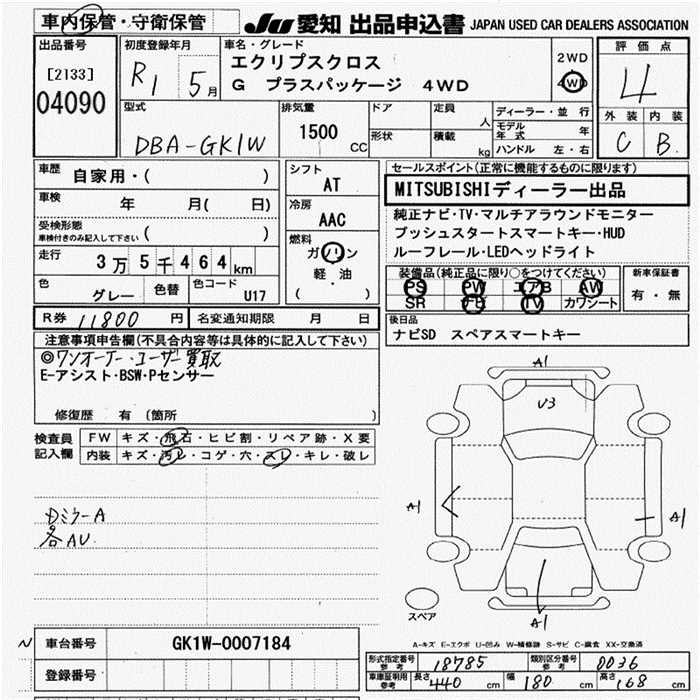 車内保管・守衛保管
JU 愛知 出品申込書 JAPAN USED CAR DEALERS ASSOCIATION
出品番号
[2133]
04090
初度登録年月
R1 5月
車名・グレード
エクリプスクロス
G プラスパッケージ 4WD
2WD
4WD
評価点
4
外装 内装
C B
型式
DBA-GK1W
排気量
1500
CC
ドア
形状
定員
人
積載
kg
ディーラー・並行
モデル年式 年
ハンドル 左・右
車歴
自家用・( )
車検 年 月( 日)
受検形態
車検付きのみ記入して下さい ( )
走行
3万5千464km
色
グレー
色替
色コード
U17
シフト
AT
冷房
AAC
燃料
ガソリン
軽・油
( )
セールスポイント(正常に機能するものに限ります)
MITSUBISHIディーラー出品
純正ナビ・TV・マルチアラウンドモニター
プッシュスタートスマートキー・HUD
ルーフレール・LEDヘッドライト
装備品(純正品に限り○をつけてください)
PS PW エアB AW
SR ナビ TV カワシート
新車保証書
有・無
R券 11800 円
名変通知期限 月 日
後日品
ナビSD スペアスマートキー
注意事項申告欄(不具合内容等は具体的に記入して下さい)
◎ワンオーナー・ユーザー買取
E-アシスト・BSW・Pセンサー
修復歴 有 (箇所 )
検査員
記入欄
FW キズ・飛石・ヒビ割・リペア跡・X要
内装 キズ・汚レ・コゲ・穴・スレ・キレ・破レ
ミラーA
各AU
A1
U3
A1
A1
A1
スペア
A-キズ E-エクボ U-凹み W-補修跡 S-サビ C-腐食 XX-交換済
車台番号
GK1W-0007184
登録番号
形式指定番号
参考
18785
類別区分番号
参考
0036
車庫証明用
参考
長さ 440 cm
幅 180 cm
高さ 168 cm